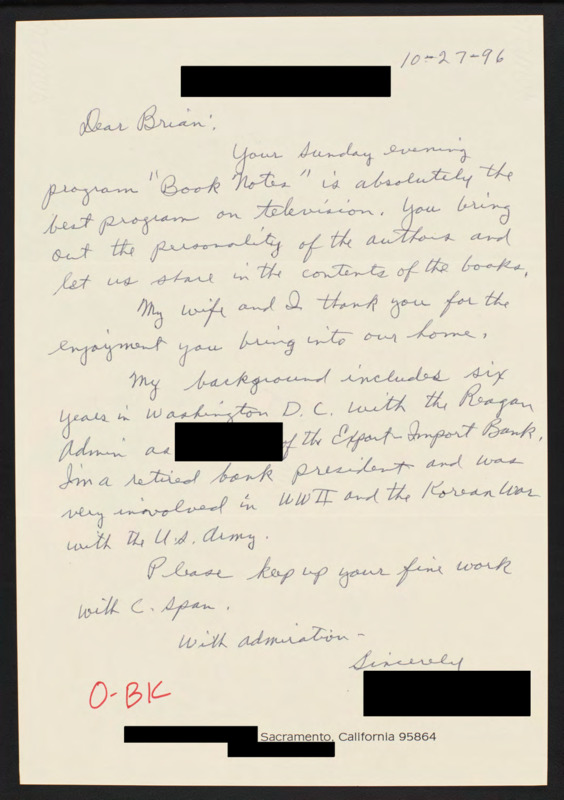 10-27-96
Dear Brian:
Your Sunday evening
program "Book Notes" is absolutely the
best program on television. You bring
out the personality of the authors and
let us share in the contents of the books.
My wife and I thank you for the
enjoyment you bring into our home.
My background includes six
years in Washington D.C. with the Reagan
Admin as of the Export-Import Bank.
I'm a retired bank president and was
very invovolved in WWII and the Korean War
with the U.S. Army.
Please keep up your fine work
with C. Span.
With admiration-
Sincerely
O-BK
Sacramento, California 95864